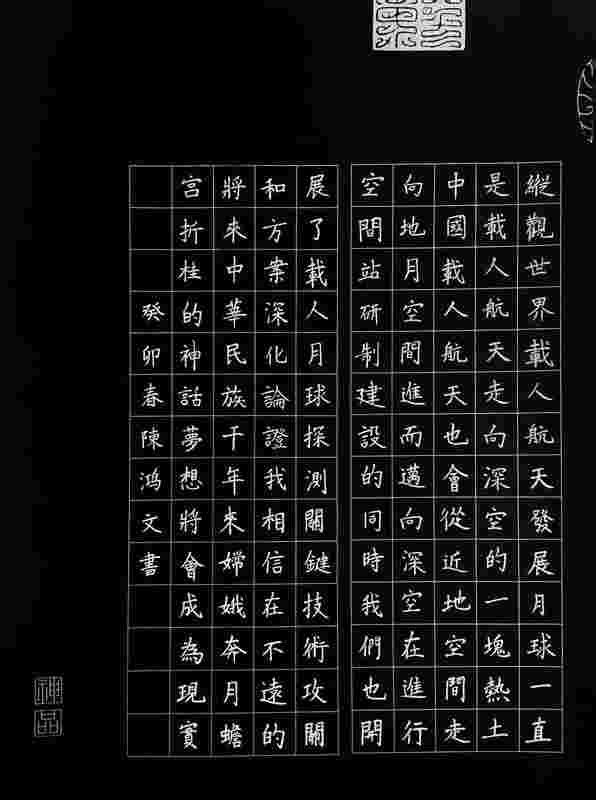 縱觀世界載人航天發展月球一直
是載人航天走向深空的一塊熱土
中國載人航天也會從近地空間走
向地月空間進而邁向深空在進行
空間站研制建設的同時我們也開
展了載人月球探測關鍵技術攻關
和方案深化論證我相信在不遠的
將來中華民族千年來嫦娥奔月蟾
宮折桂的神話夢想將會成為現實
癸卯春陳鴻文書
神品